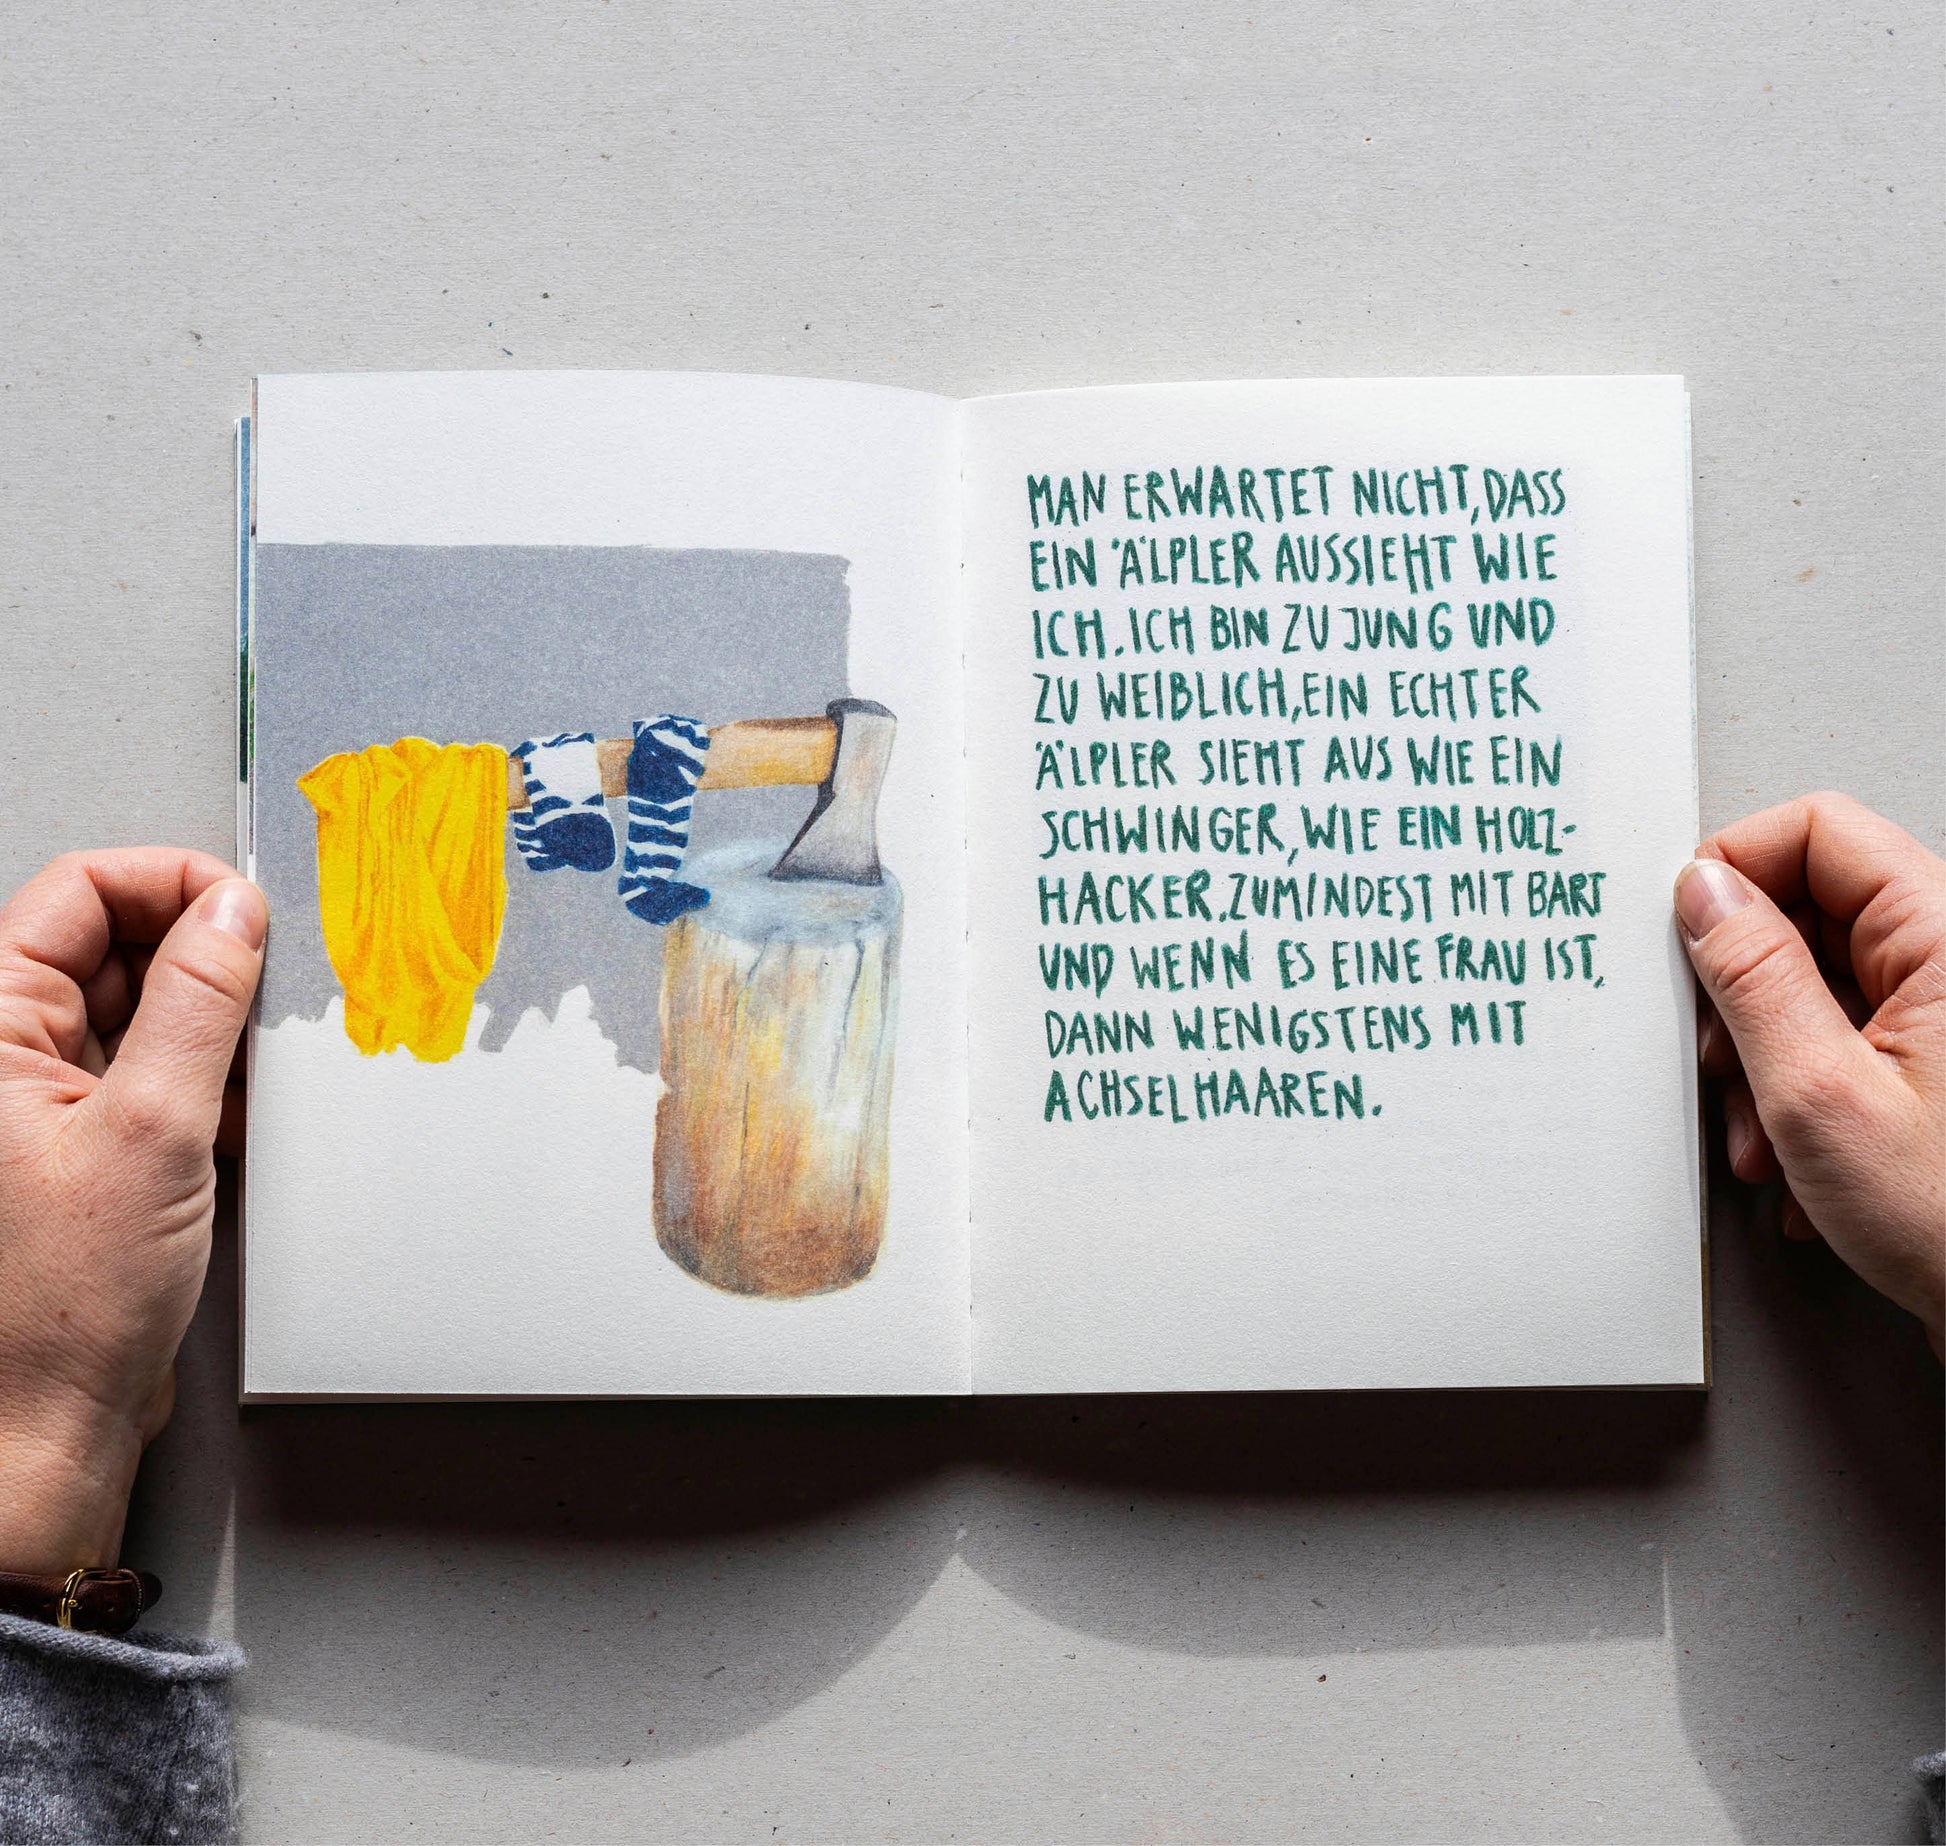 MAN ERWARTET NICHT, DASS
EIN ÄLPLER AUSSIEHT WIE
ICH. ICH BIN ZU JUNG UND
ZU WEIBLICH, EIN ECHTER
ÄLPLER SIEHT AUS WIE EIN
SCHWINGER, WIE EIN HOLZ-
HACKER. ZUMINDEST MIT BART
UND WENN ES EINE FRAU IST,
DANN WENIGSTENS MIT
ACHSELHAAREN.